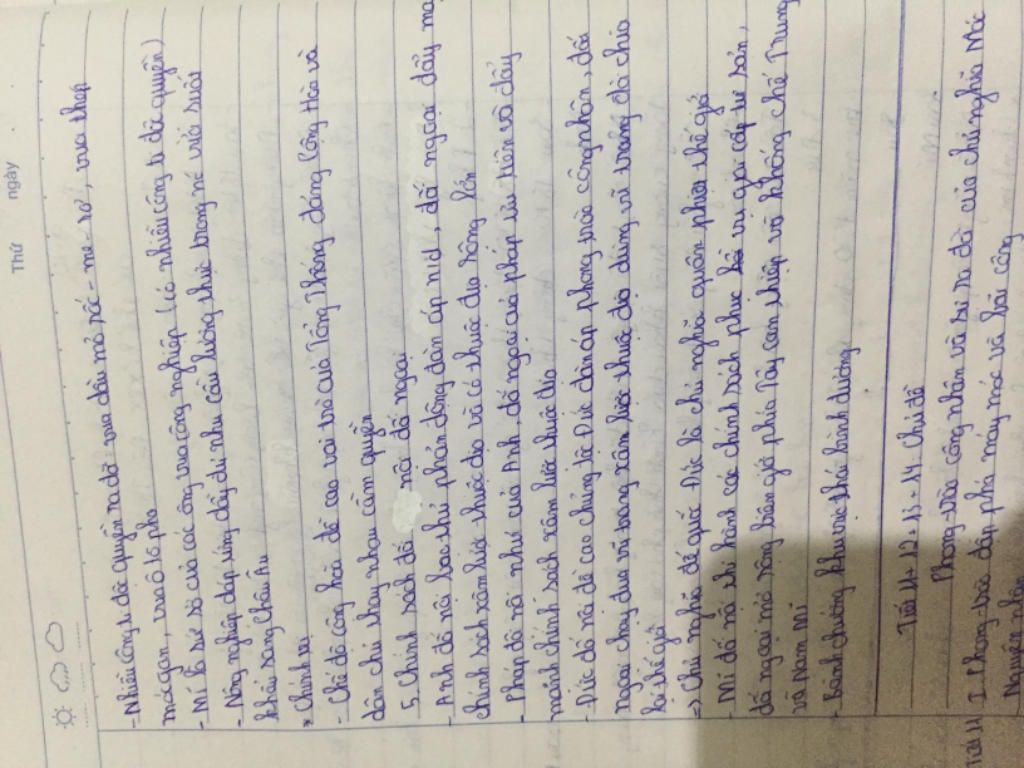 Thứ ngày
- Nhiều công ti độc quyền ra đời vua dầu mỏ rốc-phe-lơ, vua thép
moócgan, vua ô tô pho
- Mĩ là xứ sở của các ông vua công nghiệp (có nhiều công ti độc quyền)
- Nông nghiệp đáp ứng đầy đủ nhu cầu lương thực trong nước vừa xuất
khẩu sang Châu Âu
* Chính trị
- Chế độ cộng hoà đề cao vai trò của Tổng Thống đảng Cộng Hòa và
dân chủ thay nhau cầm quyền
5. Chính sách đối nội đối ngoại
- Anh đối nội bao thủ phản động đàn áp nd, đối ngoại đẩy mạ
chính sách xâm lược thuộc địa và có thuộc địa rộng lớn
- Pháp đối nội như của Anh, đối ngoại của pháp ưu tiên và đẩy
mạnh chính sách xâm lược thuộc địa
- Đức đối nội đề cao chủng tộc Đức đàn áp phong trào công nhân, đối
ngoại chạy đua vũ trang xâm lược thuộc địa dùng vũ trang đòi chia
lại thế giới
=> Chủ nghĩa đế quốc Đức là chủ nghĩa quân phiệt thế giới
- Mĩ đối nội thi hành các chính sách phục hồi vai giai cấp tư sản,
đối ngoại mở rộng biên giới phía Tây can thiệp và khống chế Trung
và Nam Mĩ
- Bành chướng khu vực thái bình dương
Tiết 11 + 12 + 13 + 14 - Chủ đề
Phong trào công nhân và sự ra đời của chủ nghĩa Mác
Tiết 11 I. Phong trào đập phá máy móc và bãi công
Nguyên nhân